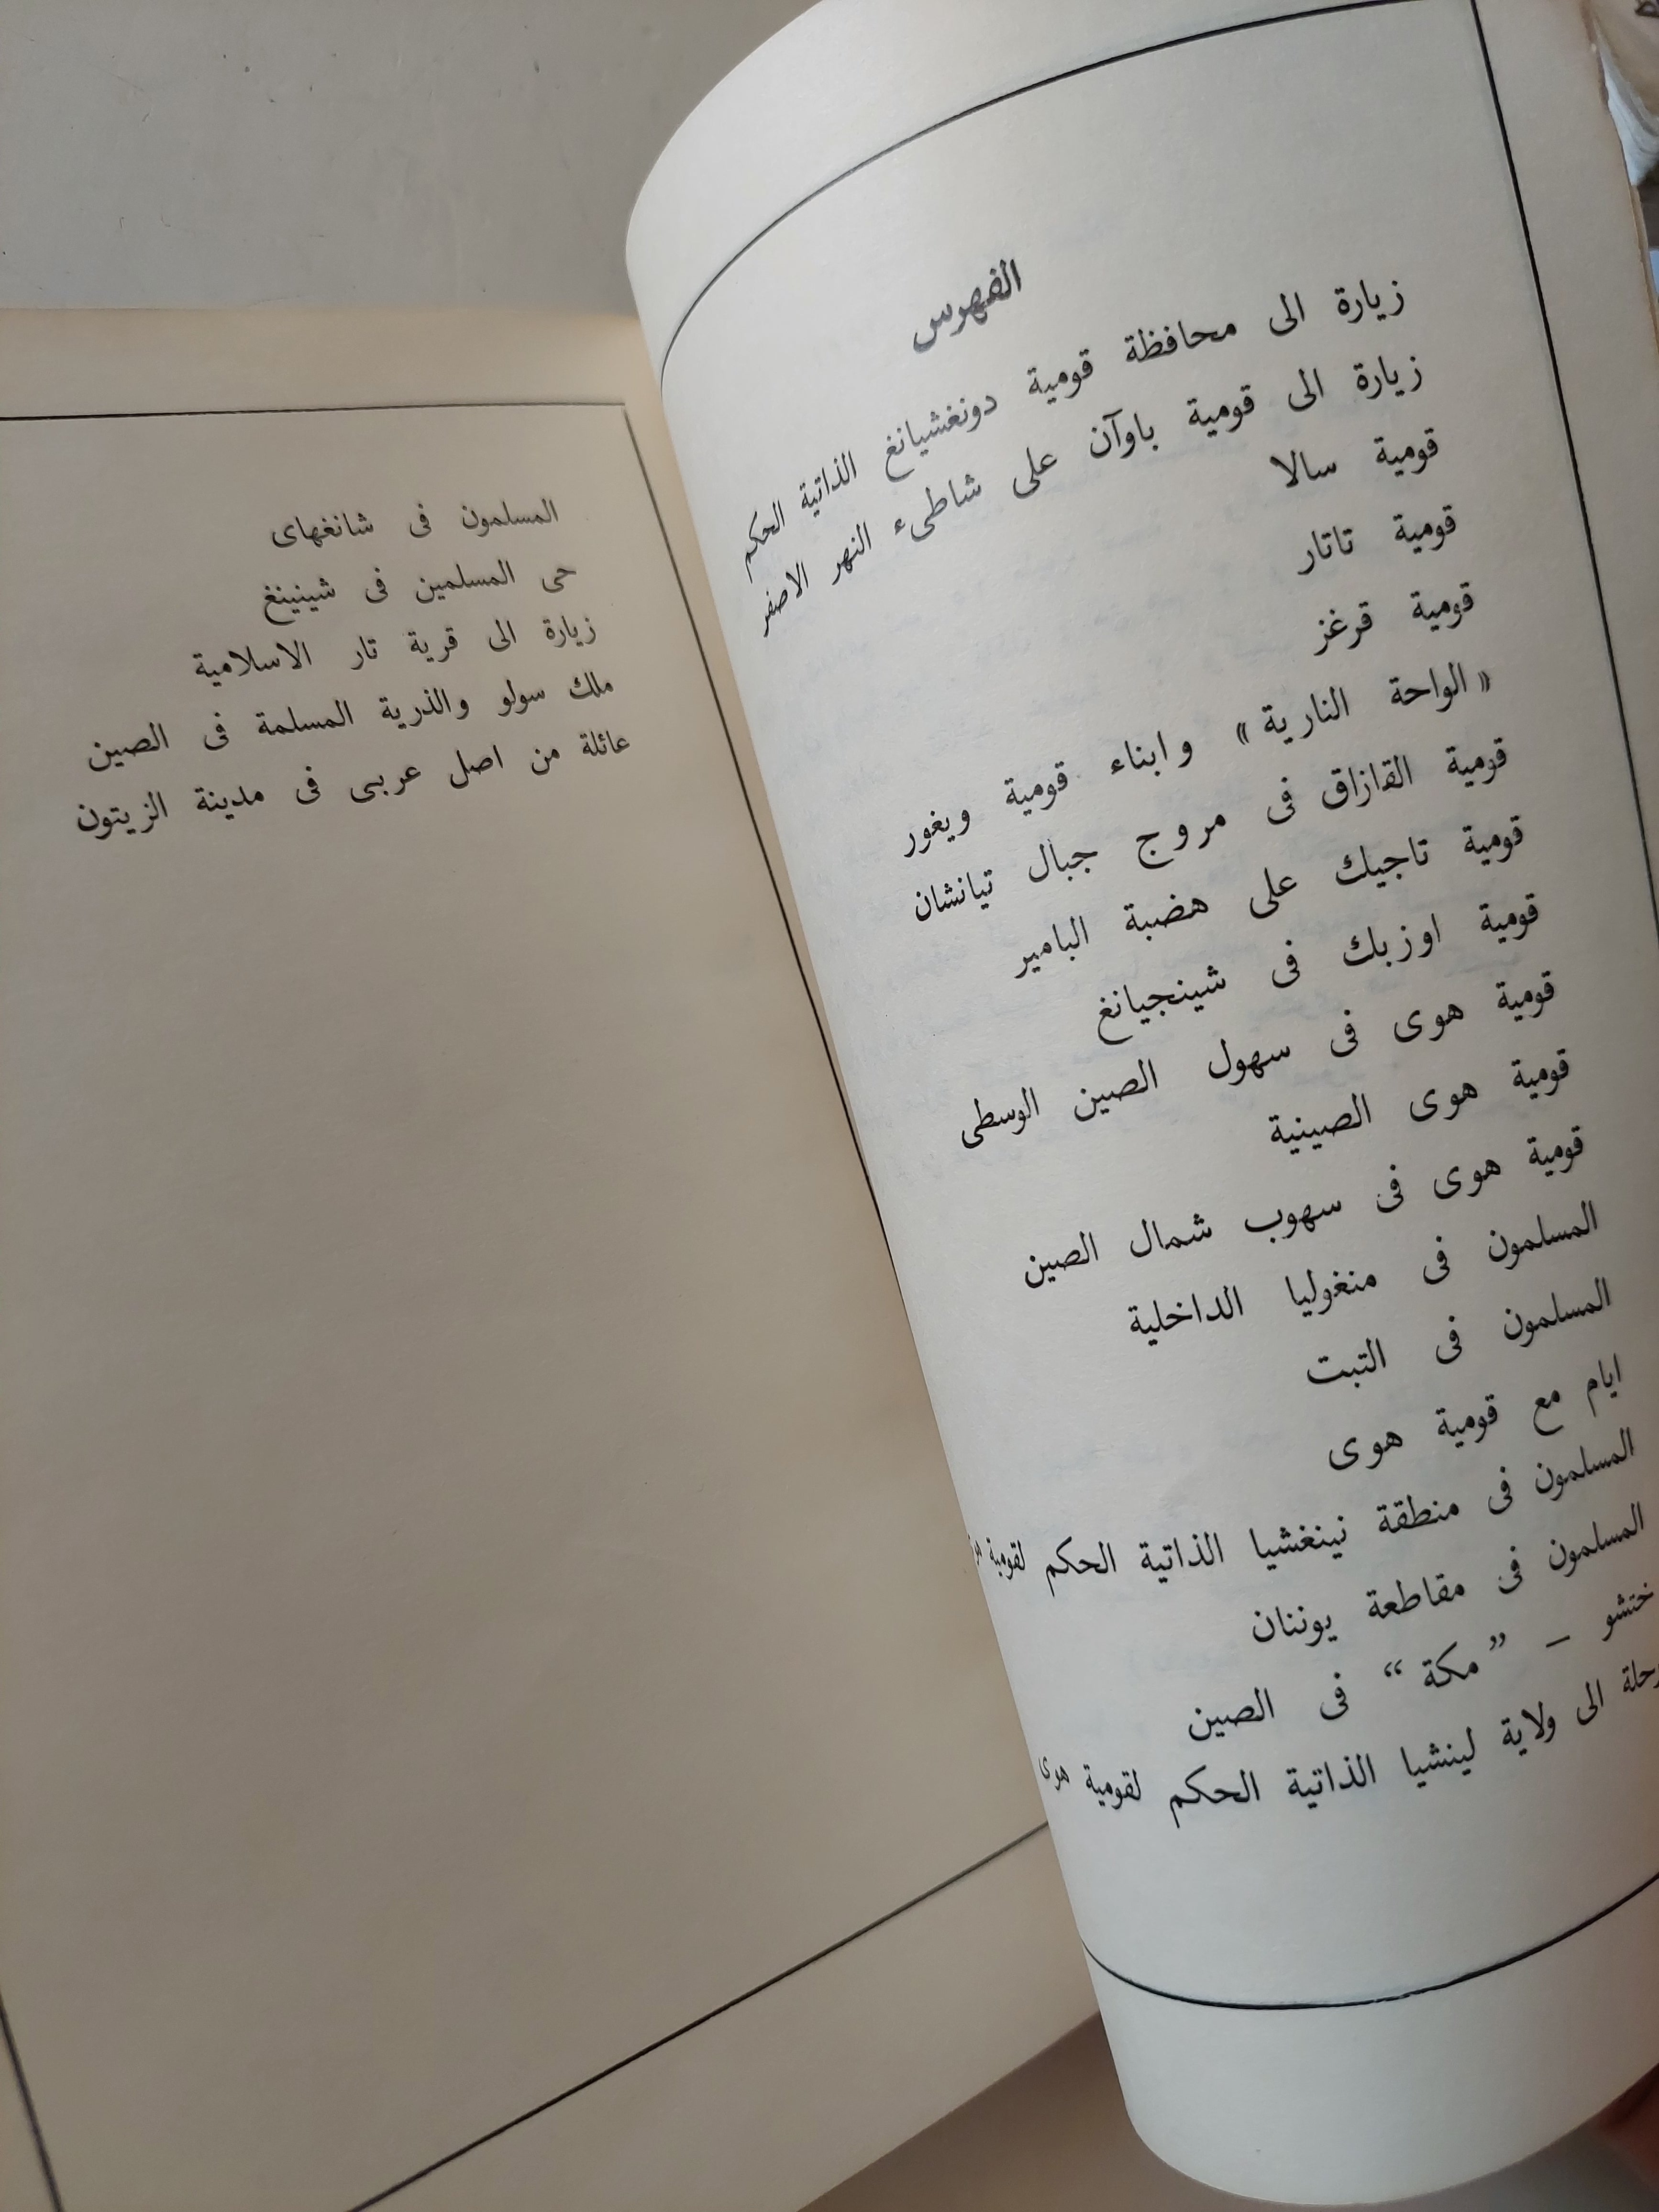 الفهرس
زيارة الى محافظة قومية دونغشيانغ الذاتية الحكم
زيارة الى قومية باوآن على شاطىء النهر الاصفر
قومية سالا
قومية تاتار
قومية قرغز
«الواحة النارية» وابناء قومية ويغور
قومية القازاق فى مروج جبال تيانشان
قومية تاجيك على هضبة البامير
قومية اوزبك فى شينجيانغ
قومية هوى فى سهول الصين الوسطى
قومية هوى الصينية
قومية هوى فى سهوب شمال الصين
المسلمون فى منغوليا الداخلية
المسلمون فى التبت
ايام مع قومية هوى
المسلمون فى منطقة نينغشيا الذاتية الحكم لقومية
المسلمون فى مقاطعة يوننان
ختشو – ”مكة“ فى الصين
رحلة الى ولاية لينشيا الذاتية الحكم لقومية هوى
المسلمون فى شانغهاى
حى المسلمين فى شينينغ
زيارة الى قرية تار الاسلامية
ملك سولو والذرية المسلمة فى الصين
عائلة من اصل عربى فى مدينة الزيتون